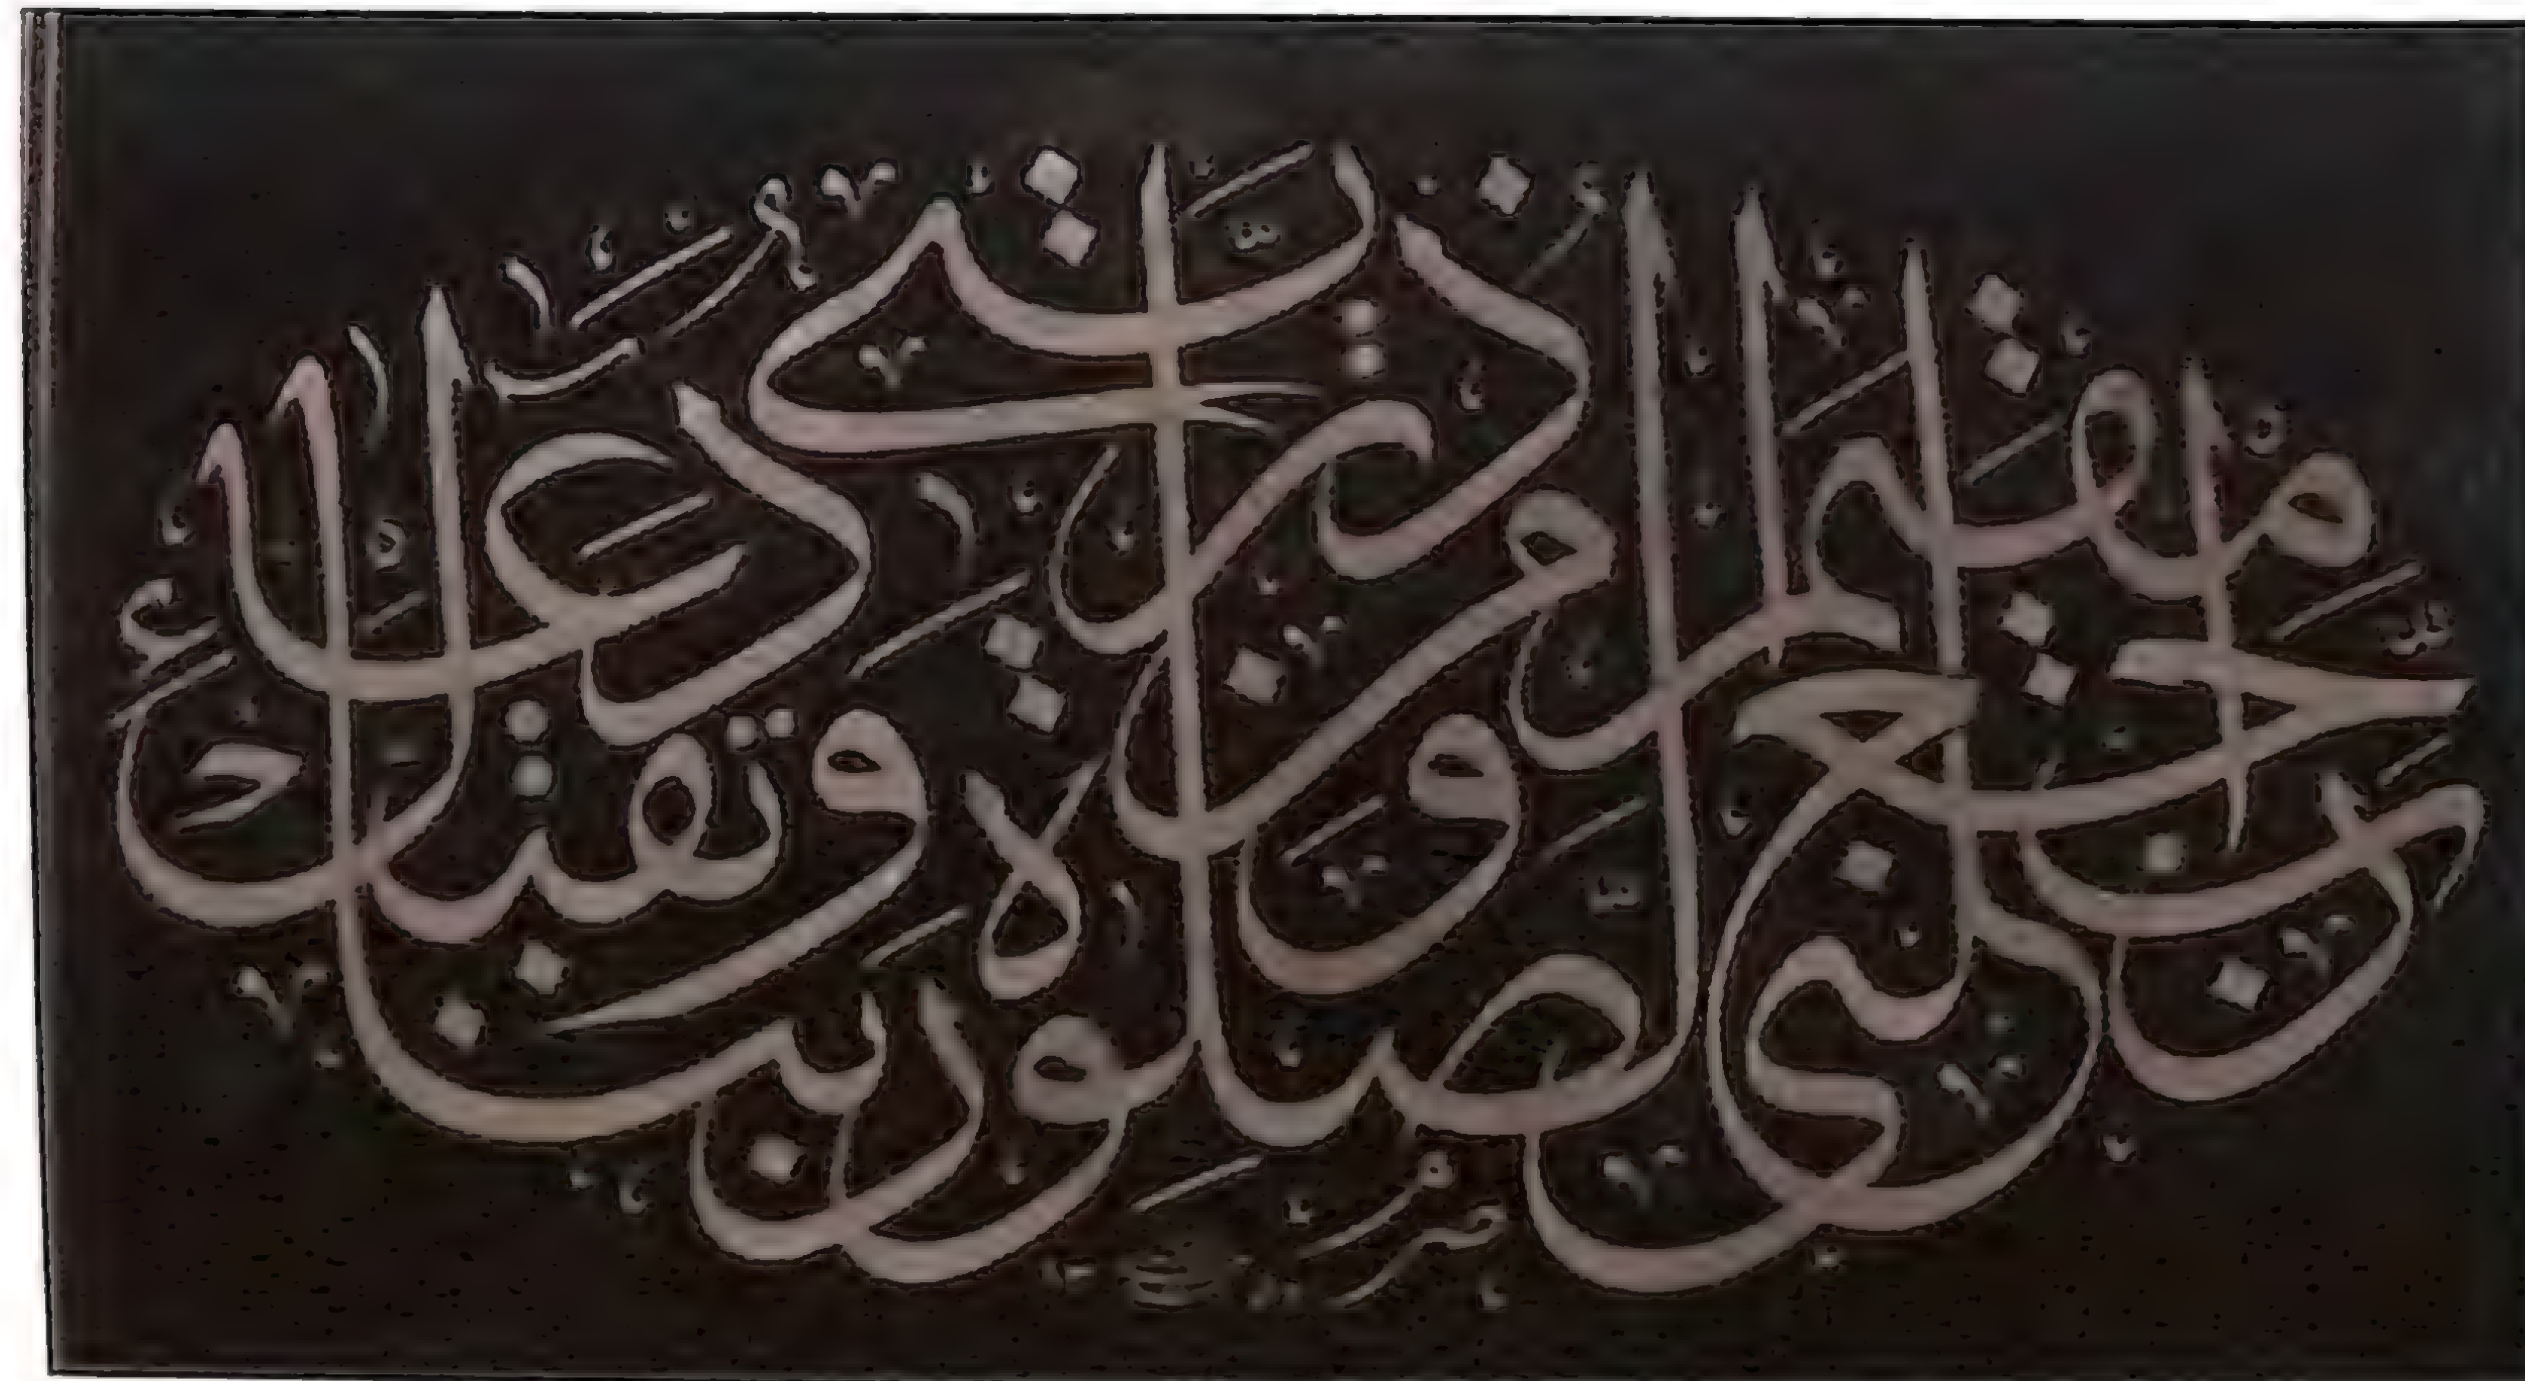 رب اجعلني مقيم الصلوة ومن ذريتي ربنا وتقبل دعاء